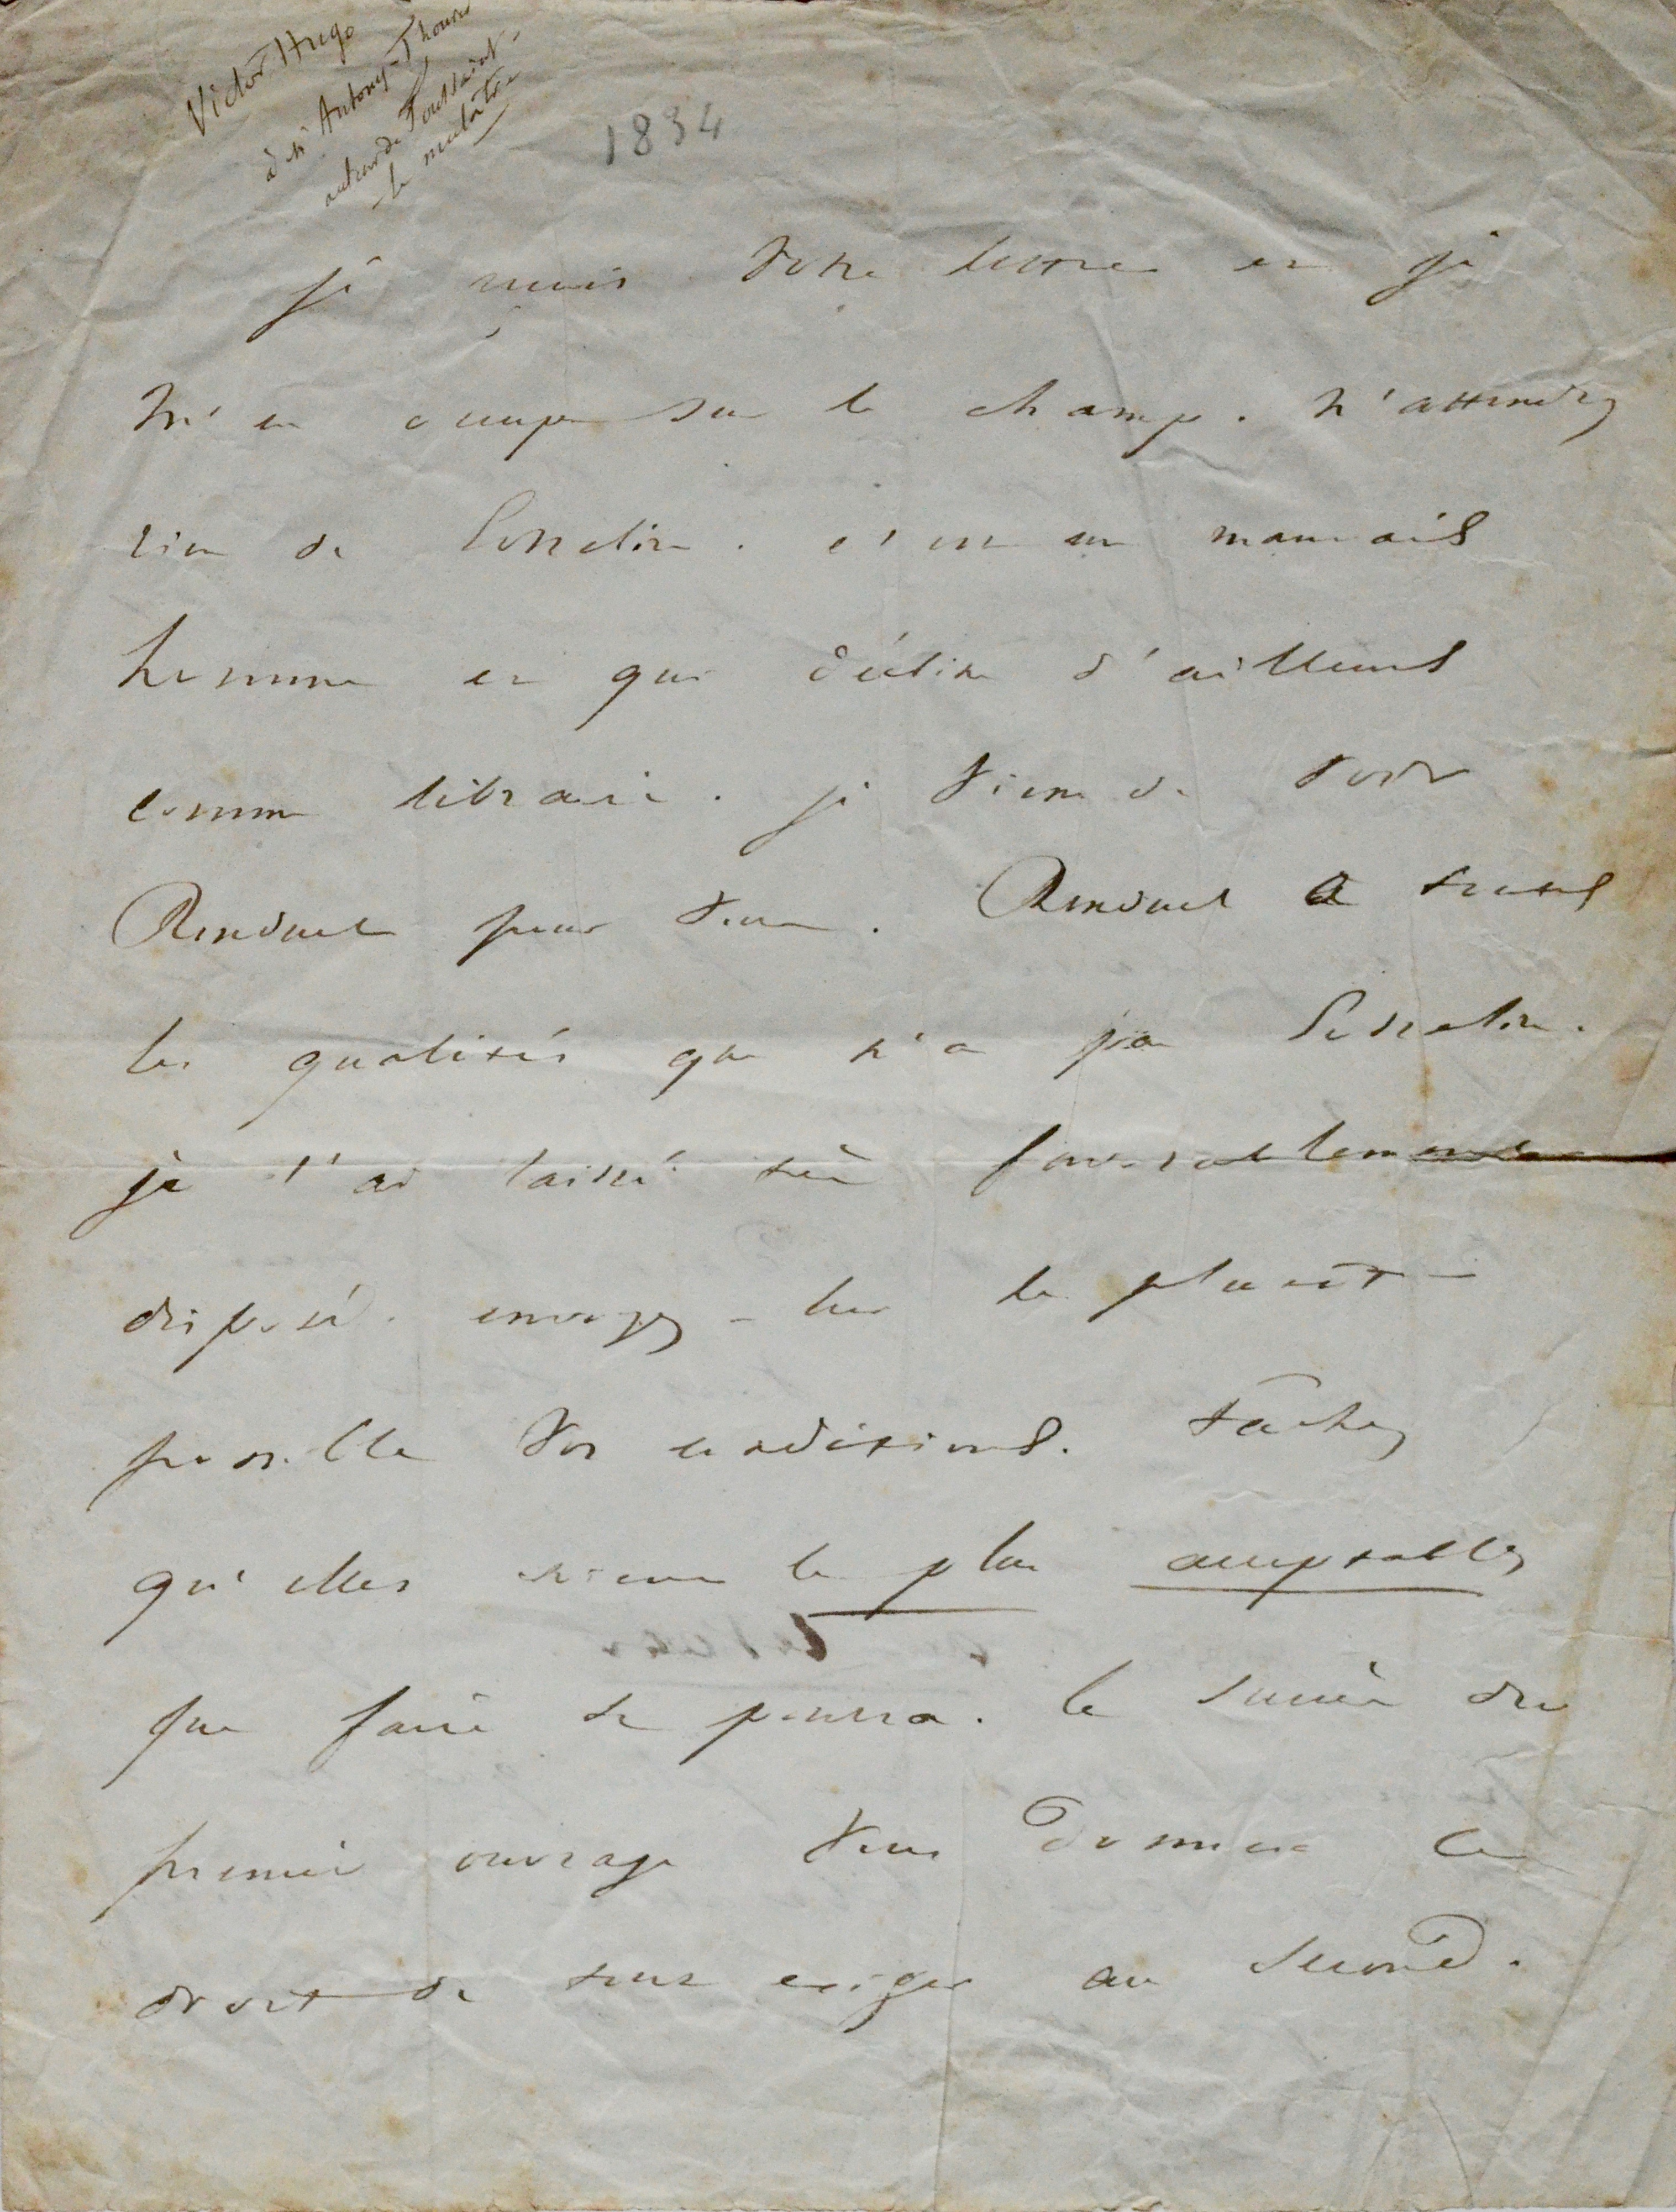 Victor Hugo
à Mr Antony-Thouret
auteur de Toussaint-
le mulâtre
1834
je reçois votre lettre et je
m'en occupe sur le champ. n'attendez
rien de Gosselin. c'est un mauvais
homme et qui décline d'ailleurs
comme libraire. je viens de voir
Renduel pour vous. Renduel a toutes
les qualités que n'a pas Gosselin.
je l'ai laissé très favorablement
disposé. envoyez-lui le plus tôt
possible vos conditions. tâchez
qu'elles soient le plus acceptables
que faire se pourra. le succès du
premier ouvrage vous donnera le
droit de tout exiger au second.